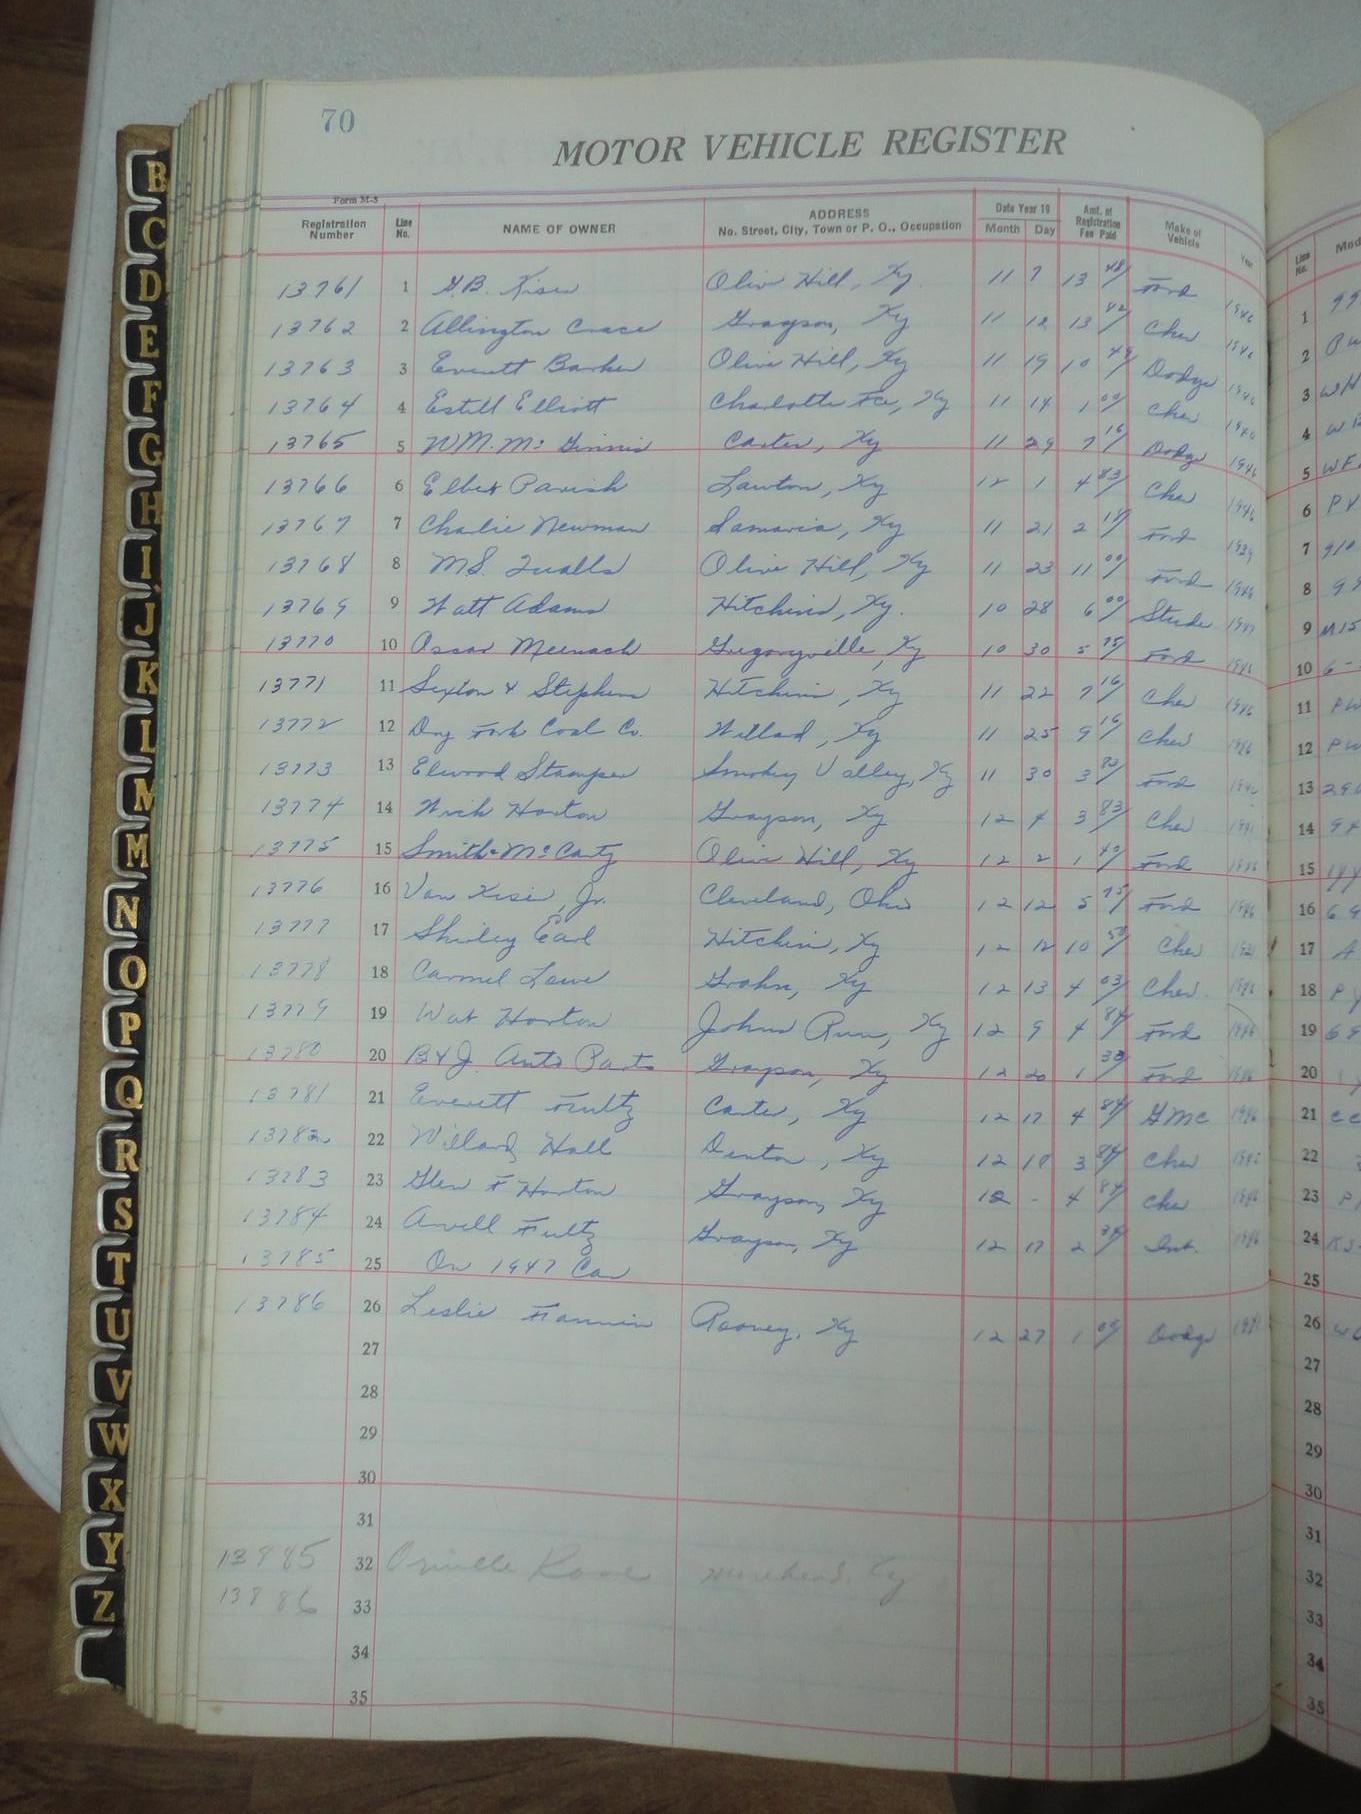 70
MOTOR VEHICLE REGISTER
Form M-3
Registration Number Line No. NAME OF OWNER ADDRESS No. Street, City, Town or P. O., Occupation Date Year 19 Month Day Amt. of Registration Fee Paid Make of Vehicle Year Line No.
13761 1 G.B. Kiser Olive Hill, Ky. 11 7 13 48 Ford 1946 1 99
13762 2 Allington Crace Grayson, Ky 11 12 13 42 Chev 1946 2
13763 3 Everett Barker Olive Hill, Ky 11 19 10 49 Dodge 1946 3 WH
13764 4 Estill Elliott Charlotte Fce, Ky 11 14 1 00 Chev 1940 4
13765 5 WM. Mc Ginnis Carter, Ky 11 29 7 16 Dodge 1946 5 WF
13766 6 Elbert Parish Lawton, Ky 12 1 4 83 Chev 1946 6 PV
13767 7 Charlie Newman Samaria, Ky 11 21 2 18 Ford 1939 7 910
13768 8 M.S. Qualls Olive Hill, Ky 11 23 11 00 Ford 1946 8
13769 9 Watt Adams Hitchins, Ky. 10 28 6 00 Stude 1947 9 M15
13770 10 Oscar Meenach Gregoryville, Ky 10 30 5 75 Ford 1946 10 6-
13771 11 Sexton & Stephens Hitchins, Ky 11 22 7 16 Chev 1946 11 PW
13772 12 Dry Fork Coal Co. Willard, Ky 11 25 9 16 Chev 1946 12 PW
13773 13 Elwood Stamper Smokey Valley, Ky 11 30 3 Ford 1946 13
13774 14 Wick Horton Grayson, Ky 12 4 3 83 Chev 1941 14
13775 15 Smith & McCarty Olive Hill, Ky 12 2 1 40 Ford 1946 15
13776 16 Van Kiser, Jr. Cleveland, Ohio 12 12 5 75 Ford 1946 16 69
13777 17 Shirley Earl Hitchins, Ky 12 12 10 50 Chev 17 A
13778 18 Carmel Lowe Grahn, Ky 12 13 4 03 Chev. 1946 18 P
13779 19 Wat Horton Johns Run, Ky 12 9 4 84 Ford 1946 19 69
13780 20 B & J. Auto Parts Grayson, Ky 12 20 1 33 Ford 1946 20
13781 21 Everett Fultz Carter, Ky 12 17 4 84 GMC 1946 21 CC
13782 22 Willard Hall Denton, Ky 12 18 3 84 Chev 22
13783 23 Glen F Horton Grayson, Ky 12 - 4 84 Chev 1946 23 P
13784 24 Arvell Fultz Grayson, Ky 12 17 2 34 Int. 1946 24 KS
13785 25 On 1947 Car 25
13786 26 Leslie Fannin Rooney, Ky 12 27 1 00 Dodge 26
27 27
28 28
29 29
30 30
31 31
13985 32 Orville Rowe Morehead, Ky 32
13986 33 33
34 34
35 35
B
C
D
E
F
G
H
I
J
K
L
M
M
N
O
P
Q
R
S
T
U
V
W
X
Y
Z